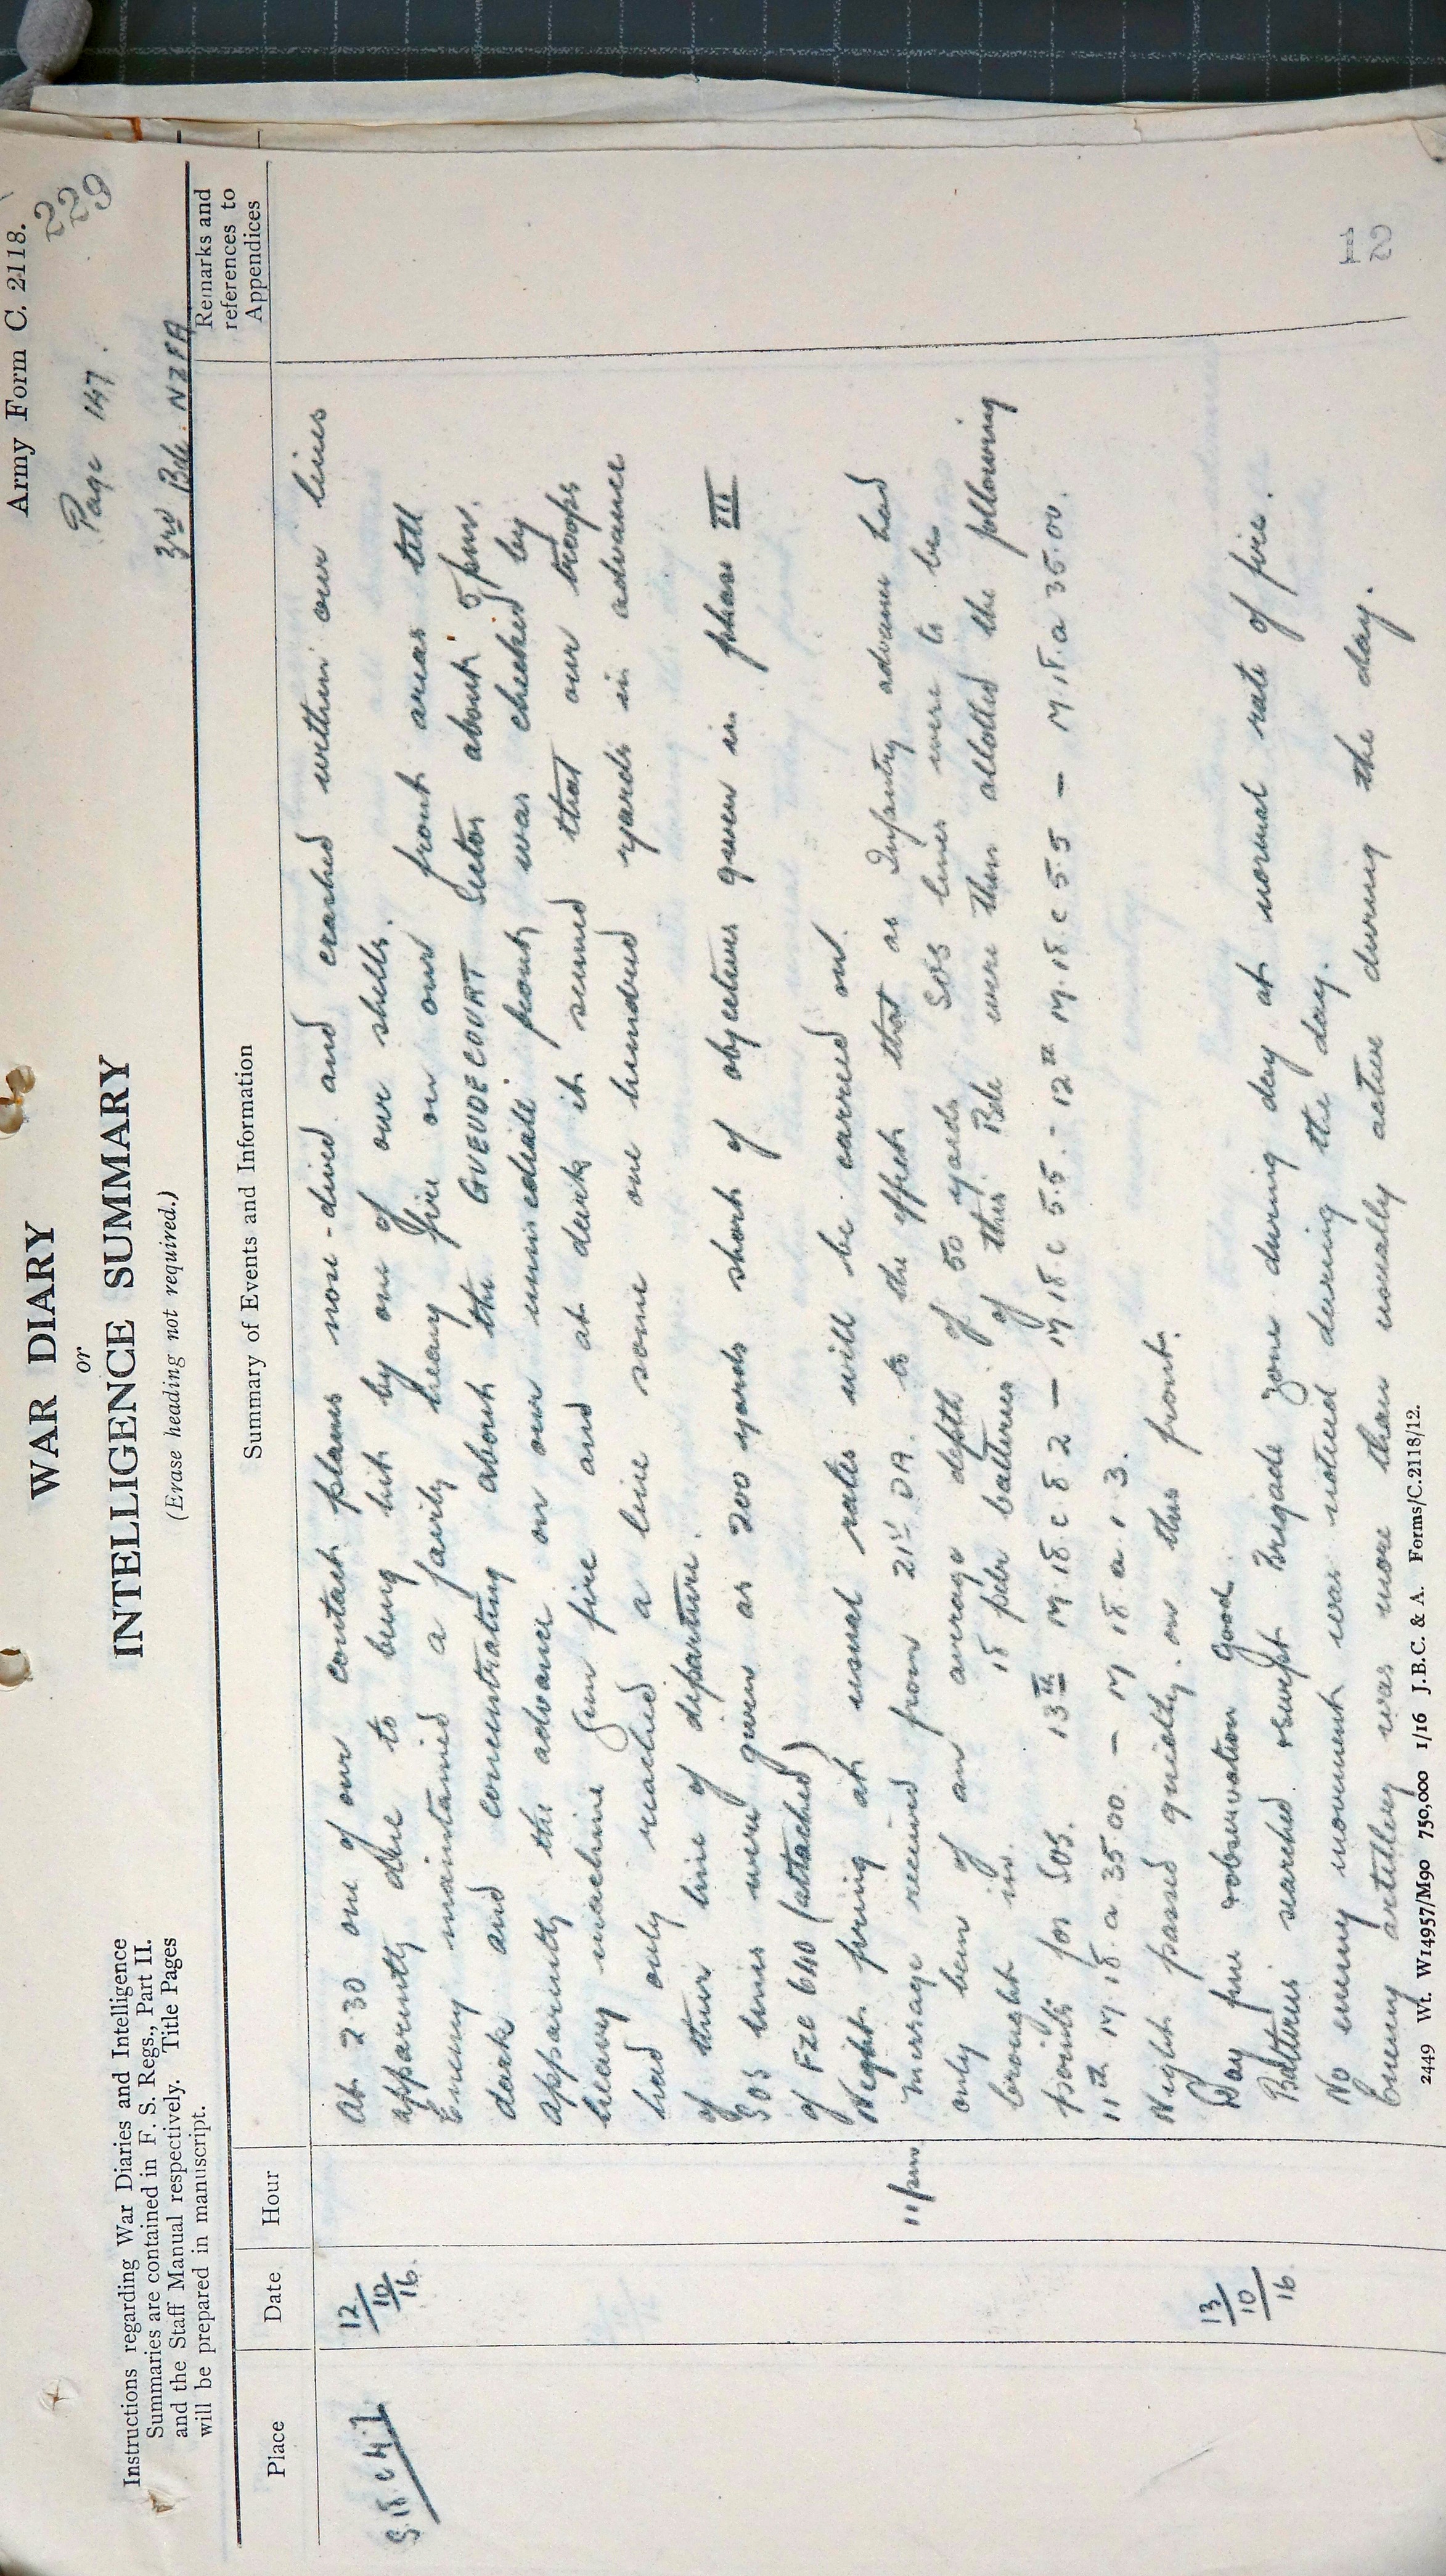 Army Form C. 2118.
WAR DIARY
or
INTELLIGENCE SUMMARY
(Erase heading not required.)
Instructions regarding War Diaries and Intelligence
Summaries are contained in F. S. Regs., Part II.
and the Staff Manual respectively. Title Pages
will be prepared in manuscript.
Page 147.
229
3rd Bde. NZFA
Place
Date
Hour
Summary of Events and Information
Remarks and
references to
Appendices
S.18.c.4.7
12/10/16
At 2.30 one of our contact planes nose-dived and crashed within our lines
apparently due to being hit by one of our shells.
Enemy maintained a fairly heavy fire on our front areas till
dark and concentrating about the GUEUDECOURT Sector about 5pm.
apparently the advance on our immediate front was checked by
heavy machine gun fire and at dark it seemed that our troops
had only reached a line some one hundred yards in advance
of their line of departure.
SOS lines were given as 200 yards short of objectives given in phase III
of FZC 640 (attached)
Night firing at usual rates will be carried out.
11pm
Message received from 21st DA. to the effect that as Infantry advance had
only been of an average depth of 50 yards SOS lines were to be
brought in. 18 pdr batteries of this Bde were then allotted the following
points for SOS. 13th M.18.c 8.2 — M.18.c 5.5. - 12th M.18.c 5.5 — M.18.a 35.00.
11th M.18.a 35.00. — M 18.a.1.3.
Night passed quietly on this front.
13/10/16
Day fine observation good.
Batteries searched Brigade zone during day at normal rate of fire.
No enemy movement was noticed during the day.
Enemy artillery was more than usually active during the day.
12
2449 Wt. W14957/M90 750,000 1/16 J.B.C. & A. Forms/C.2118/12.